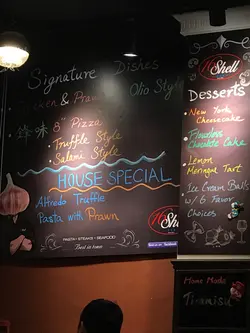 Signature Dishes
Chicken & Prawn Olio Style
8" Pizza
Truffle Style
Salami Style
HOUSE SPECIAL
Alfredo Truffle
Pasta with Prawn
PASTA • STEAKS • SEAFOOD
Best in town
Shell
Shell
Desserts
New York
Cheesecake
Flourless
Chocolate Cake
Lemon
Meringue Tart
Ice Cream Balls
w/ 6 Flavor
Choices
Home Made
Tiramisu